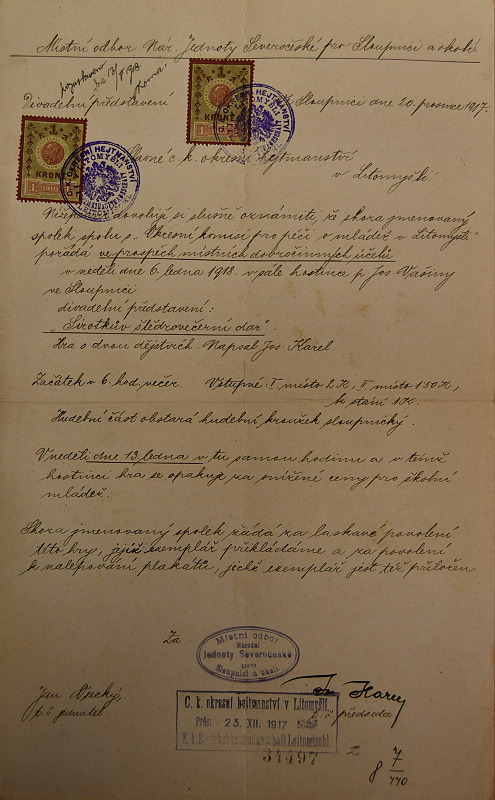 Místní odbor Nár. Jednoty Severočeské pro Sloupnici a okolí
Divadelní představení
V Sloupnici dne 20. prosince 1917.
1
KRONE
1 1910
1
KRONE
1
OKRESNÍ HEJTMANSTVÍ
LITOMYŠLI
Slavné c. k. okresní hejtmanství
v Litomyšli.
dovolují si slušně oznámiti, že skora jmenovaný
spolek spolu s „Okresní komisí pro péči o mládež v Litomyšli"
pořádá ve prospěch místních dobročinných účelů
v neděli dne 6. ledna 1918 v sále hostince p. Jos. Vašiny
ve Sloupnici
divadelní představení:
„Sirotkův štědrovečerní dar".
Hra o dvou dějstvích. Napsal Jos. Karel.
Začátek v 6 hod. večer. Vstupné: I. místo 2 K, II. místo 1·50 K,
k stání 1 K.
Hudební část obstará hudební kroužek sloupnický.
V neděli dne 13. ledna v tu samou hodinu a v témž
hostinci hra se opakuje za snížené ceny pro školní
mládež.
Skora jmenovaný spolek žádá za laskavé povolení
této hry, jejíž exemplář přikládáme a za povolení
k nalepování plakátů, jichž exemplář jest též přiložen.
Za:
Místní odbor
Národní
Jednoty Severočeské
pro
Sloupnici a okolí.
Jan
t. č. jednatel.
Jos. Karel
t. č. předseda
C. k. okresní hejtmanství v Litomyšli.
Präs: 23. XII. 1917
K. k. Bezirkshauptmannschaft Leitomischl.
31497
2
8 7/770